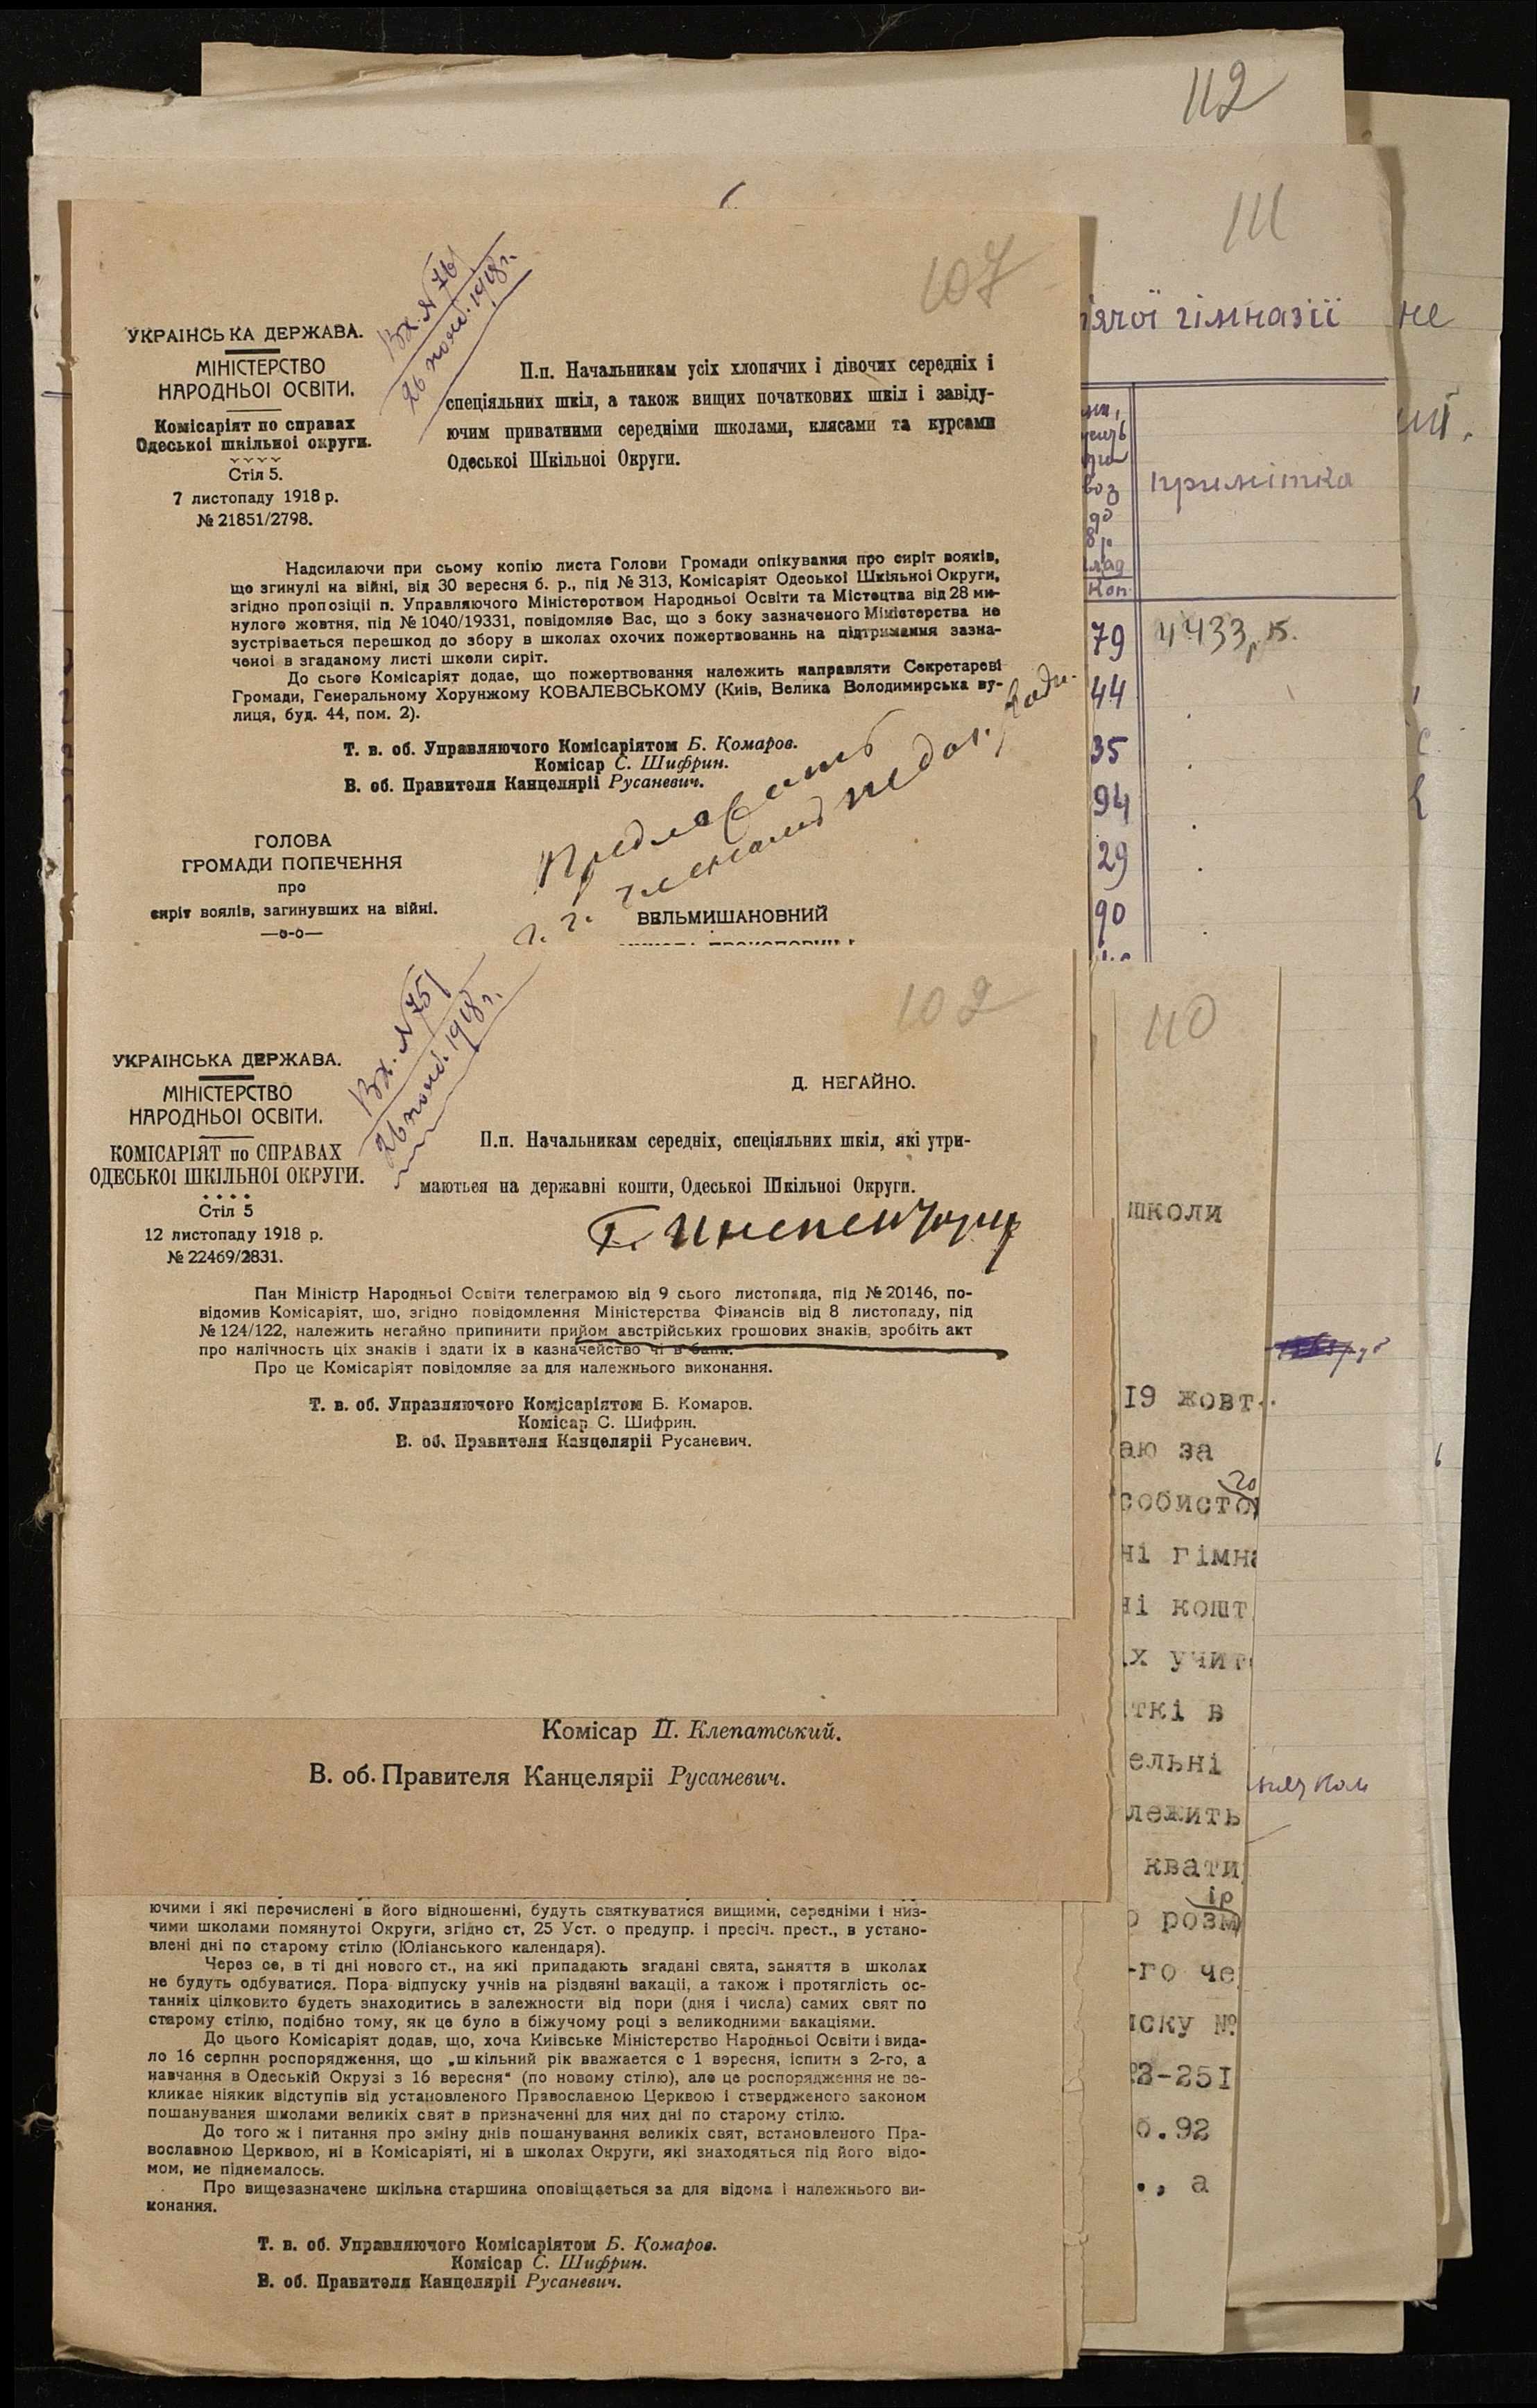 112
111
107
Вх. № 761
26 нояб. 1918 г.
УКРАІНСЬКА ДЕРЖАВА.
МІНІСТЕРСТВО
НАРОДНЬОІ ОСВІТИ.
Комісаріят по справах
Одеськоі шкільноі округи.
Стіл 5.
7 листопаду 1918 р.
№ 21851/2798.
П.п. Начальникам усіх хлопячих і дівочих середніх і
спеціяльних шкіл, а також вищих початкових шкіл і завіду-
ючим приватними середніми школами, клясами та курсами
Одеськоі Шкільноі Округи.
Надсилаючи при сьому копію листа Голови Громади опікування про сиріт вояків,
що згинулі на війні, від 30 вересня б. р., під № 313, Комісаріят Одеськоі Шкільноі Округи,
згідно пропозіціі п. Управляючого Міністерством Народньоі Освіти та Містецтва від 28 ми-
нулого жовтня, під № 1040/19331, повідомляе Вас, що з боку зазначеного Міністерства не
зустріваеться перешкод до збору в школах охочих пожертвованнь на підтримання зазна-
ченоі в згаданому листі школи сиріт.
До сього Комісаріят додае, що пожертвования належить направляти Секретареві
Громади, Генеральному Хорунжому КОВАЛЕВСЬКОМУ (Киів, Велика Володимирська ву-
лиця, буд. 44, пом. 2).
Т. в. об. Управляючого Комісаріятом Б. Комаров.
Комісар С. Шифрин.
В. об. Правителя Канцеляріі Русаневич.
Предложить
г. г. членам педог.
ГОЛОВА
ГРОМАДИ ПОПЕЧЕННЯ
про
сиріт воялів, загинувших на війні.
—о-о—
ВЕЛЬМИШАНОВНИЙ
ячої гімназії
не
примітка
Коп
79 4433 р. к.
44
35
94
29
90
102
Вх. № 751
26 нояб. 1918 г.
УКРАІНСЬКА ДЕРЖАВА.
МІНІСТЕРСТВО
НАРОДНЬОІ ОСВІТИ.
КОМІСАРІЯТ по СПРАВАХ
ОДЕСЬКОІ ШКІЛЬНОІ ОКРУГИ.
Стіл 5
12 листопаду 1918 р.
№ 22469/2831.
Д. НЕГАЙНО.
П.п. Начальникам середніх, спеціяльних шкіл, які утри-
маються на державні кошти, Одеськоі Шкільноі Округи.
Г. Инспектору
Пан Міністр Народньоі Освіти телеграмою від 9 сього листопада, під № 20146, по-
відомив Комісаріят, шо, згідно повідомлення Міністерства Фінансів від 8 листопаду, під
№ 124/122, належить негайно припинити прийом австрійських грошових знаків, зробіть акт
про налічность ціх знаків і здати іх в казначейство чі в банк.
Про це Комісаріят повідомляе за для належнього виконання.
Т. в. об. Управляючого Комісаріятом Б. Комаров.
Комісар С. Шифрин.
В. об. Правителя Канцеляріі Русаневич.
Комісар П. Клепатський.
В. об. Правителя Канцеляріі Русаневич.
ючими і які перечислені в його відношенні, будуть святкуватися вищими, середніми і низ-
чими школами помянутоі Округи, згідно ст, 25 Уст. о предупр. і пресіч. прест., в устано-
влені дні по старому стілю (Юліанського календаря).
Через се, в ті дні нового ст., на які припадають згадані свята, заняття в школах
не будуть одбуватися. Пора відпуску учнів на різдвяні вакаціі, а також і протяглість ос-
танніх цілковито будеть знаходитись в залежности від пори (дня і числа) самих свят по
старому стілю, подібно тому, як це було в біжучому році з великодними вакаціями.
До цього Комісаріят додав, що, хоча Киівське Міністерство Народньоі Освіти і вида-
ло 16 серпнн роспорядження, що „шкільний рік вважается с 1 вэресня, іспити з 2-го, а
навчання в Одеській Окрузі з 16 вересня“ (по новому стілю), але це роспорядження не ве-
кликае ніяких відступів від установленого Православною Церквою і ствердженого законом
пошанування школами великіх свят в призначенні для них дні по старому стілю.
До того ж і питання про зміну днів пошанування великіх свят, встановленого Пра-
вославною Церквою, ні в Комісаріяті, ні в школах Округи, які знаходяться під його відо-
мом, не піднемалось.
Про вищезазначене шкільна старшина оповіщаеться за для відома і належнього ви-
конання.
Т. в. об. Управляючого Комісаріятом Б. Комаров.
Комісар С. Шифрин.
В. об. Правителя Канцеляріі Русаневич.
110
школи
19 жовт.
аю за
собисто
го
ні гімна
ні кошт
х учит
ткі в
ельні
лежить
квати
ір
о розм
-го че
іску №
23-251
б.92
., а